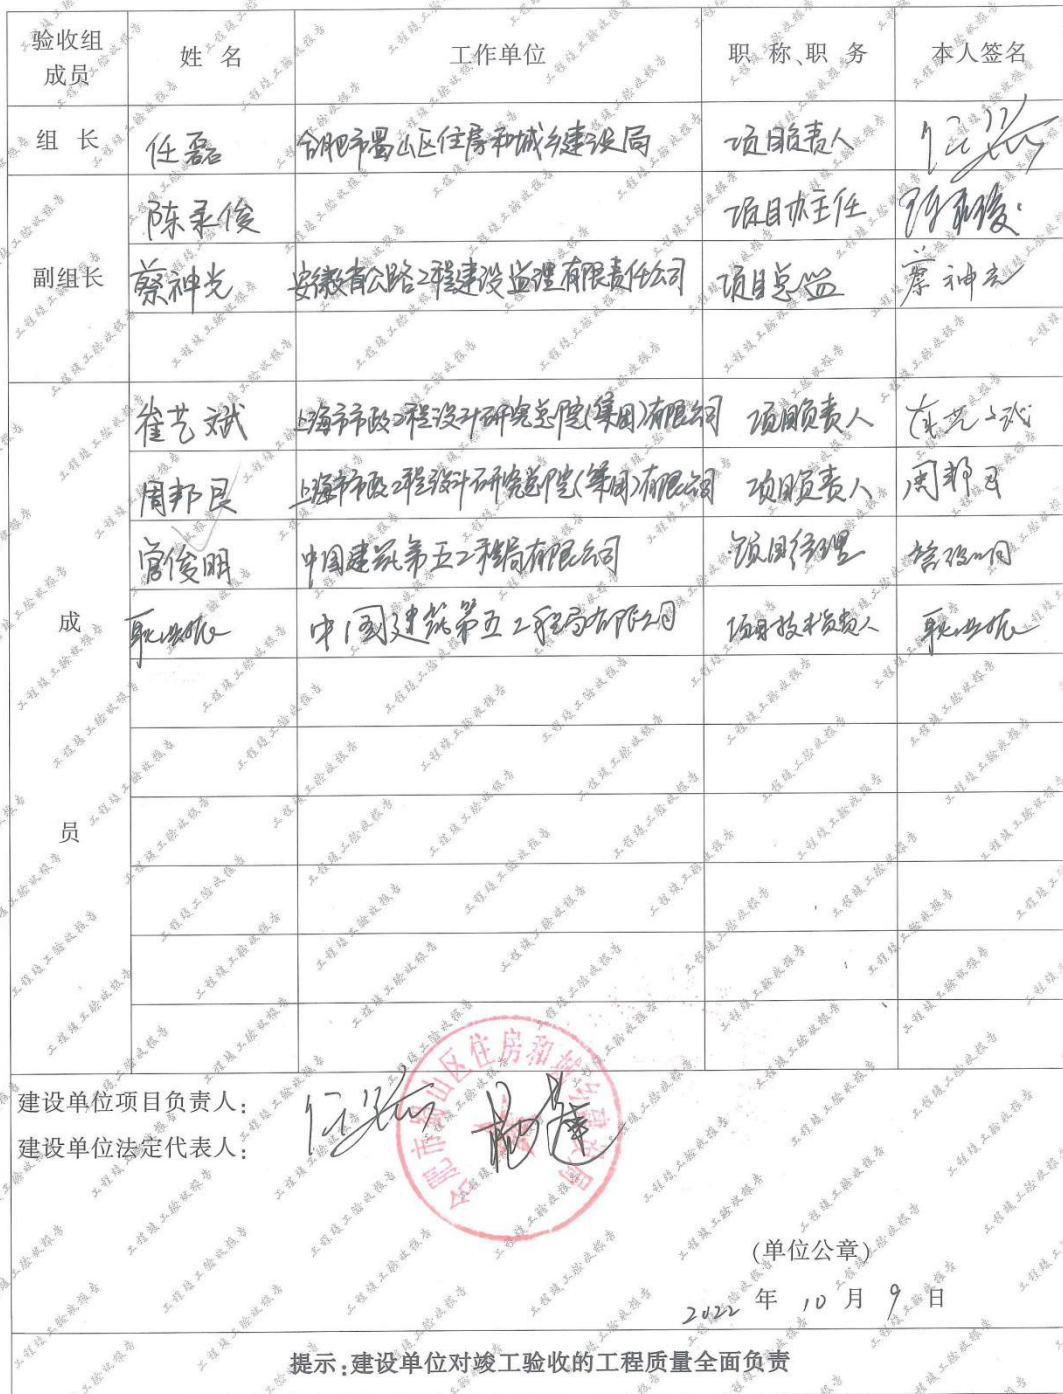 验收组成员 姓 名 工作单位 职 称、职 务 本人签名
组 长 任磊 合肥市蜀山区住房和城乡建设局 项目负责人 任磊
陈柔俊 项目办主任
副组长 蔡神光 安徽省公路工程建设监理有限责任公司 项目总监 蔡神光
崔艺斌 上海市市政工程设计研究总院(集团)有限公司 项目负责人 崔艺斌
周邦良 上海市市政工程设计研究总院(集团)有限公司 项目负责人 周邦良
管俊明 中国建筑第五工程局有限公司 项目经理 管俊明
成 耿业振 中国建筑第五工程局有限公司 项目技术负责人 耿业振
员
建设单位项目负责人: 任磊
建设单位法定代表人:
合肥市蜀山区住房和城乡建设局
(单位公章)
2022 年 10 月 9 日
提示:建设单位对竣工验收的工程质量全面负责
工程竣工验收报告